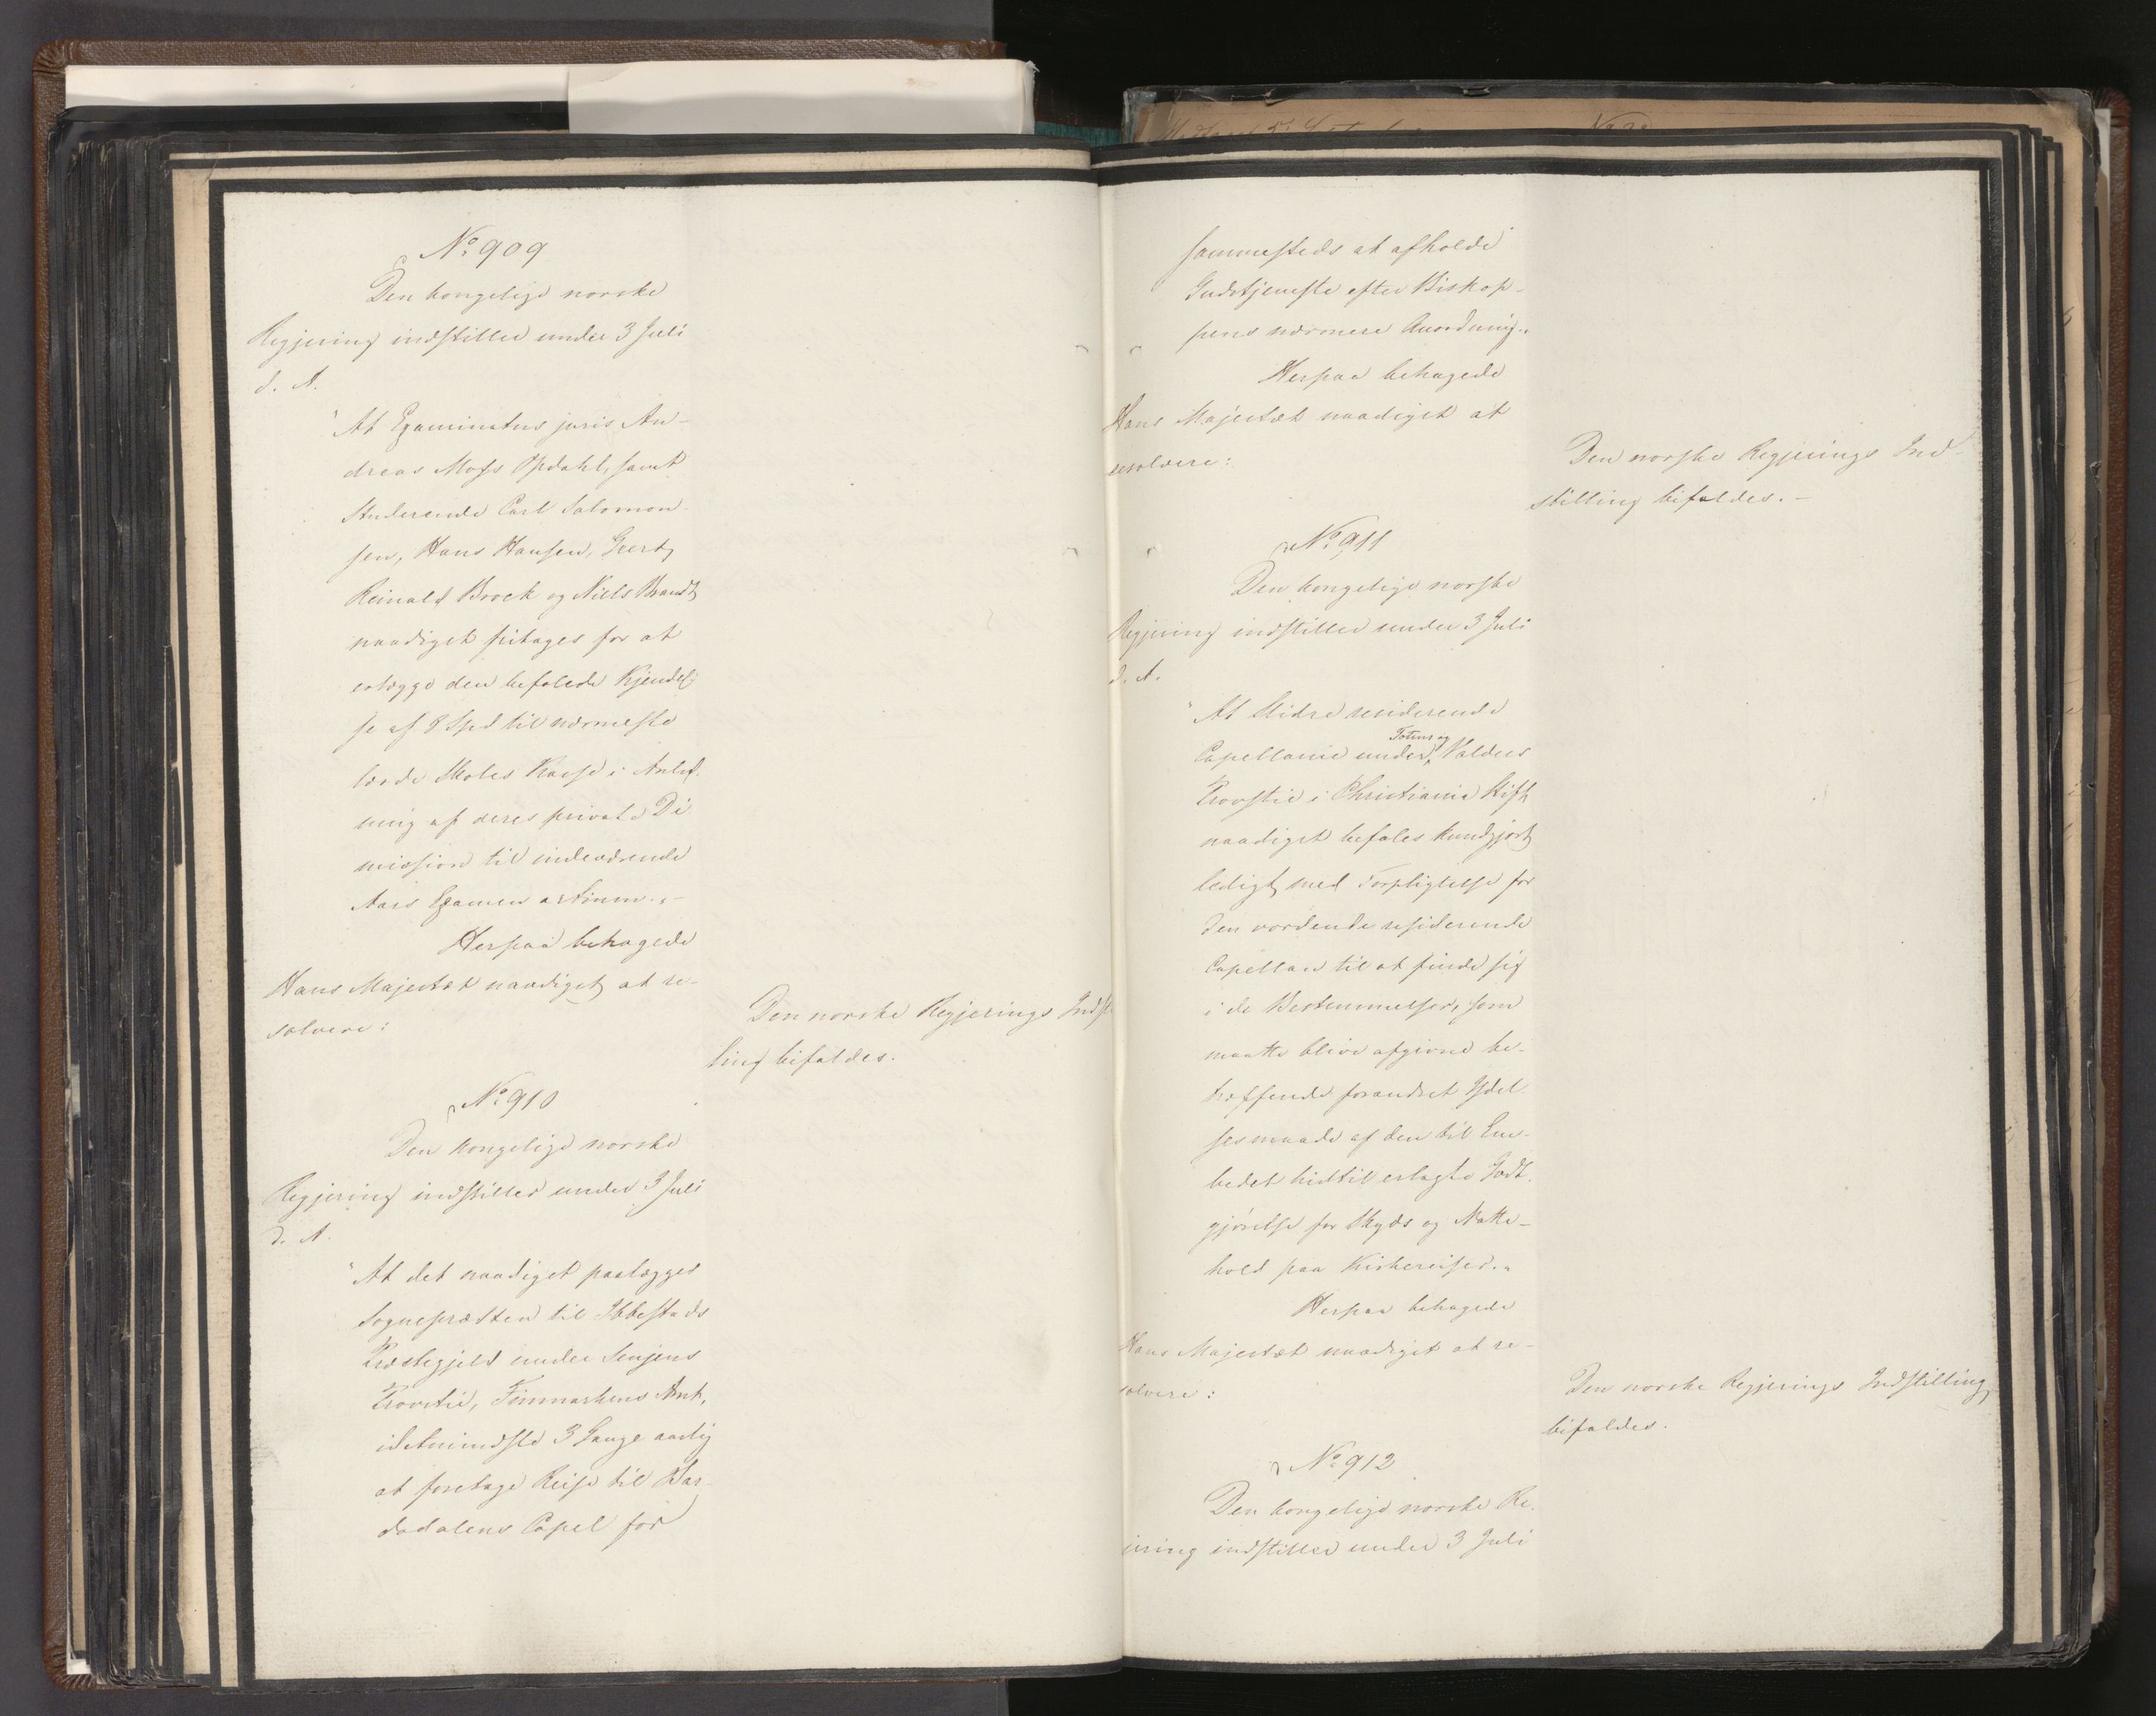 No 909
Den kongelige norske
Regjering indstiller under 3 Juli
d. A.
"At Examinatus juris An-
dreas Moss Opdahl, samt
Studerende Carl Salomon-
sen, Hans Hansen, Geert
Reinald Brock og Niels Brandt
naadigst fritages for at
erlægge den befalede Kjendel-
se af 8 Spd til nærmeste
lærde Skoles Kasse i Anled-
ning af deres private Di
mission til indeværende
Aars Examen artium."-
Herpaa behagede
Hans Majestæt naadigst at re-
solvere:
Den norske Regjerings Indst
ling bifaldes.
No 910
Den kongelige norske
Regjering indstiller under 3 Juli
d. A.
"At det naadigst paalægges
Sognepræsten til Ibbestads
Præstegjeld under Senjens
Provsti, Finmarkens Amt,
idetmindste 3 Gange aarlig
at foretage Reise til Bar-
dodalens Capel for
sammesteds at afholde
Gudstjeneste efter Biskop-
pens nærmere Anordning."
Herpaa behagede
Hans Majestæt naadigst at
resolvere:
Den norske Regjerings Ind-
stilling bifaldes.-
No 911
Den kongelige norske
Regjering indstiller under 3 Juli
d. A.
"At Slidre residerende
Capellanie under Totens og Valders
Provstie i Christiania Stift
naadigst befales kundgjort
ledigt med Forpligtelse for
den vordende residerende
Capellan til at finde sig
i de Bestemmelser, som
maatte blive afgivne be-
træffende forandret Ydel
sesmaade af den til Em-
bedet hidtil erlagte Godt-
gjørelse for Skyds og Natte-
hold paa Kirkereiser."
Herpaa behagede
Hans Majestæt naadigst at re-
solvere:
Den norske Regjerings Indstilling
bifaldes.
No 912
Den kongelige norske Re-
jering indstiller under 3 Juli